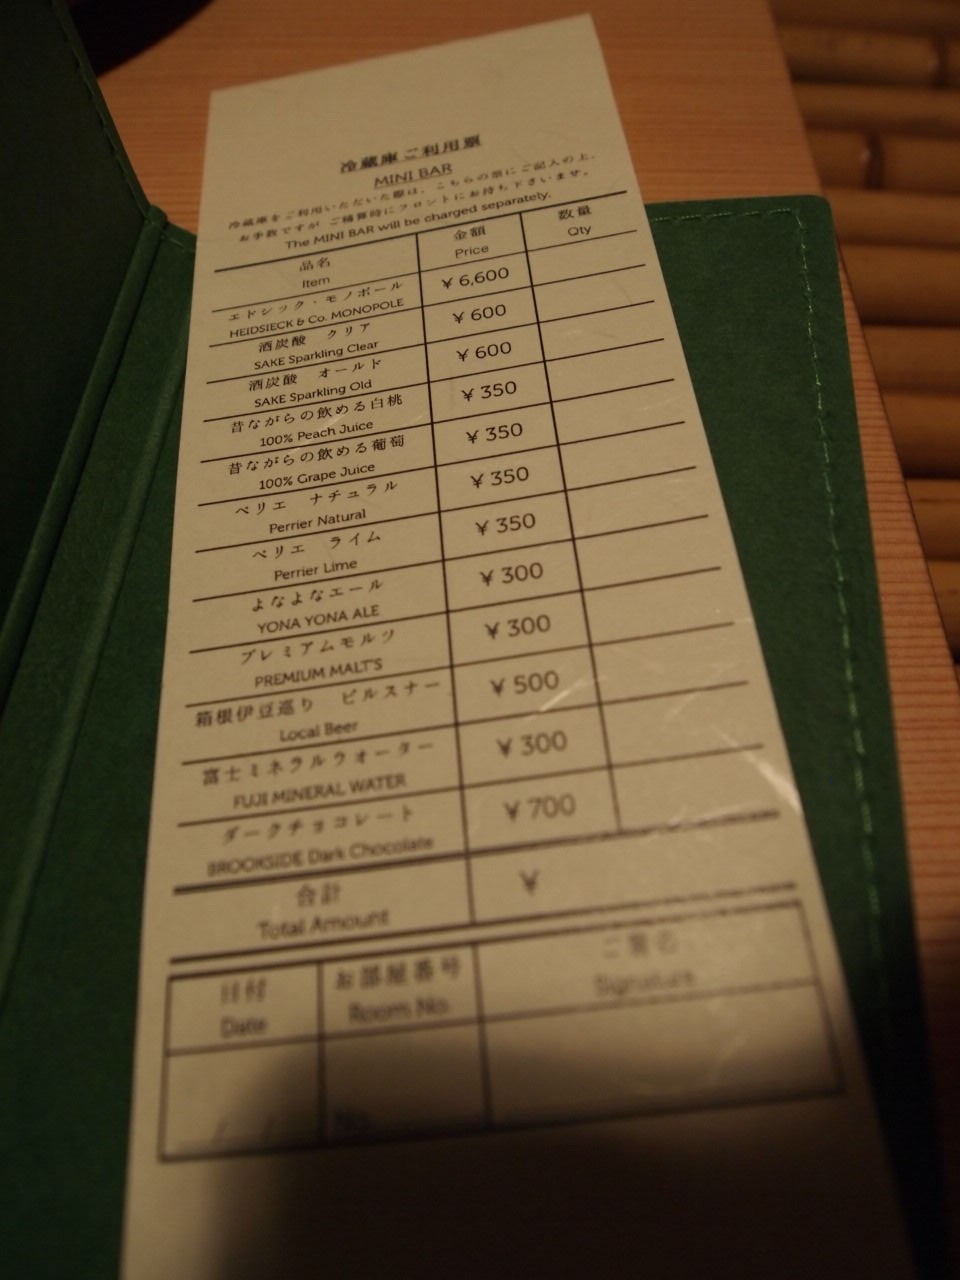 冷蔵庫ご利用票
MINI BAR
冷蔵庫をご利用いただいた際は、こちらの票にご記入の上、
お手数ですが ご精算時にフロントにお持ち下さいませ。
The MINI BAR will be charged separately.
品名 金額 数量
Item Price Qty
エドシック・モノポール
HEIDSIECK & Co. MONOPOLE ¥6,600
酒炭酸 クリア
SAKE Sparkling Clear ¥600
酒炭酸 オールド
SAKE Sparkling Old ¥600
昔ながらの飲める白桃
100% Peach Juice ¥350
昔ながらの飲める葡萄
100% Grape Juice ¥350
ペリエ ナチュラル
Perrier Natural ¥350
ペリエ ライム
Perrier Lime ¥350
よなよなエール
YONA YONA ALE ¥300
プレミアムモルツ
PREMIUM MALT'S ¥300
箱根伊豆巡り ピルスナー
Local Beer ¥500
富士ミネラルウオーター
FUJI MINERAL WATER ¥300
ダークチョコレート
BROOKSIDE Dark Chocolate ¥700
合計
Total Amount ¥
日付 お部屋番号 ご署名
Date Room No. Signature
/ / No.